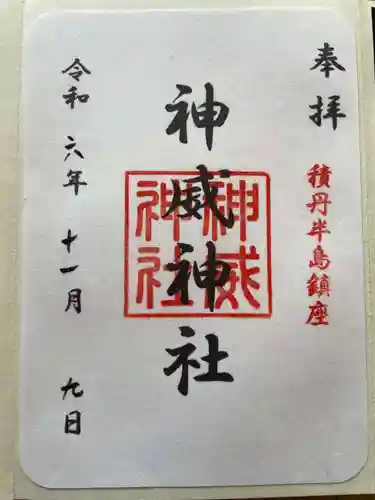 奉拝
積丹半島鎮座
神威神社
神威
神社
令和 六年 十一月 九日